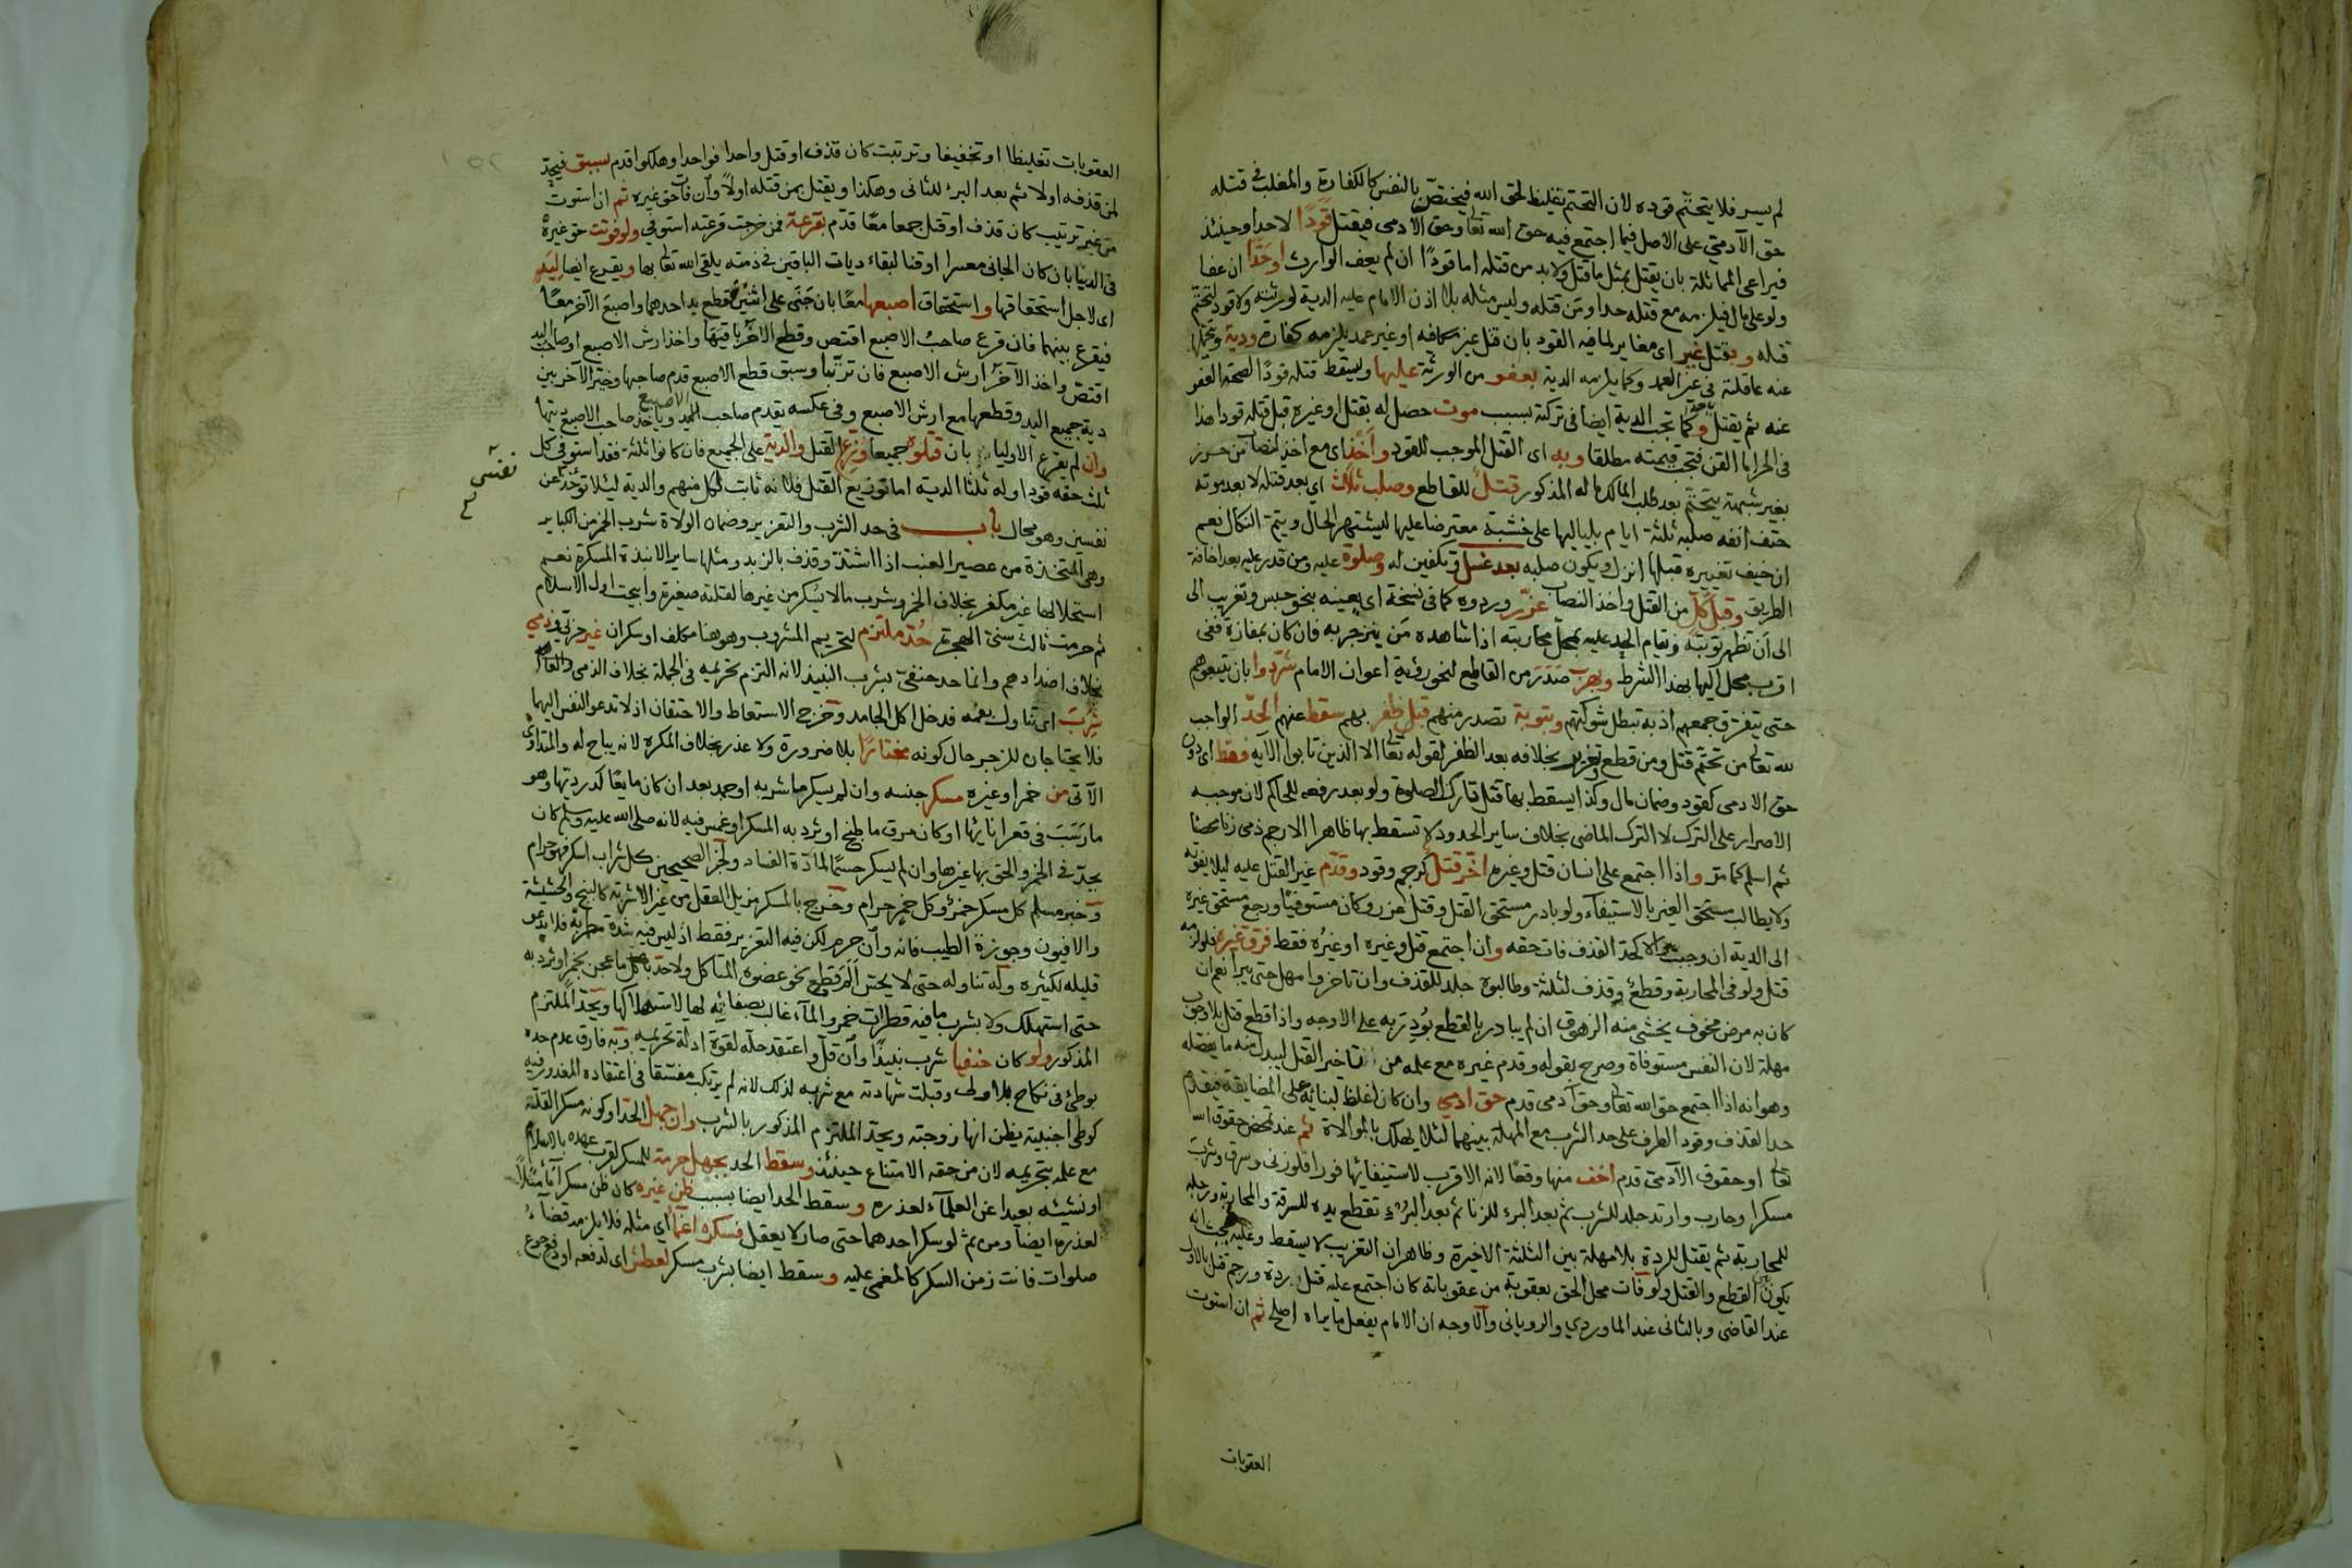 لم يسر فلا يتحتم قوده لان التحتم تغليظ لحق الله فيختص بالنفس كالكفارة والمغلب في قتله
حق الآدمي على الاصل فيما اجتمع فيه حق الله تعا وحق الآدمي فيقتل قودا لا حدا وحينئذ
فيراعى المماثلة بان يقتل بمثل ما قتل ولا بد من قتله اما قودا ان لم يعف الوارث او حدا ان عفا
ولو على مال فيلزمه مع قتله حدا ومن قتله وليس مثله بلا اذن الامام عليه الدية لورثته ولا قود لتحتم
قتله وبقتل غير اى مغاير لما فيه القود بان قتل غير مكافه او غير عمد يلزمه كفارة ودية وتحملها
عنه عاقلته في غير العمد وكما يلزمه الدية بعفو من الورثة عليها ويسقط قتله قودا لصحة العفو
عنه ثم يقتل وكما تجب الدية ايضا في تركته بسبب موت حصل له بقتل او غيره قبل قتله قودا هذا
في الحر اما القن فتجب قيمته مطلقا وبه اى القتل الموجب للقود واخذ اى مع اخذ لنصاب من حرز
بغير شبهة يتحتم بعد طلب المالك ماله المذكور قتل للقاطع وصلب ثلاث اى بعد قتله لا بعد موته
حتف انفه صلبه ثلثة ايام بلياليها على خشبة معترضا عليها ليشتهر الحال ويتم النكال نعم
ان خيف تغيره قبلها انزل ويكون صلبه بعد غسل وتكفين له وصلوة عليه ومن قدر عليه بعد اخافة
الطريق وقبل كل من القتل واخذ النصاب عزر وردوه كما في نسخة اى يعينه بنحو حبس وتغريب الى
الى ان تظهر توبته ويقام الحد عليه بمحل محاربته اذا شاهده من ينزجر به فان كان بمفازة ففي
اقرب محل اليها بهذا الشرط وبهرب صدر من القاطع لنحو رؤية اعوان الامام شردوا بان يتبعوهم
حتى يتفرق جمعهم اذ به تبطل شوكتهم وبتوبة تصدر منهم قبل ظفر بهم سقط عنهم الحد الواجب
لله تعالى من تحتم قتل ومن قطع وتعزير بخلافه بعد الظفر لقوله تعالا الا الذين تابوا الآية فقط اى دون
حق الادمي كقود وضمان مال وكذا يسقط بها قتل تارك الصلوة ولو بعد رفعه للحاكم لان موجبه
الاصرار على الترك لا الترك الماضى بخلاف ساير الحدود لا تسقط بها ظاهرا الا رجم ذمي زنا محصنا
ثم اسلم كما مر واذا اجتمع على انسان قتل وغيره اخر قتل كرجم وقود وقدم غير القتل عليه ليلا يفوته
ولا يطالب مستحق الغير بالاستيفآء ولو بادر مستحق القتل وقتل عزر وكان مستوفيا ورجع مستحق غيره
الى الدية ان وجبت والا كحد القذف فات حقه وان اجتمع قتل وغيره او غيره فقط فرق غيره فلو لزمه
قتل ولو في المحاربة وقطع وقذف لثلثة وطالبوه جلد للقذف وان تاخروا مهل حتى يبرا نعم ان
كان به مرض مخوف يخشى منه الزهوق ان لم يبادر بالقطع بودر به على الاوجه واذا قطع قتل بلا وجوب
مهلة لان النفس مستوفاة وصرح بقوله وقدم غيره مع علمه من تاخير القتل ليبدل منه ما يفضله
وهو انه اذا اجتمع حق الله تعالى وحق آدمي قدم حق ادمي وان كان اغلظ لبنائه على المضايقة فيقدم
حد القذف وقود الطرف على حد الشرب مع المهلة بينهما لئلا يهلك بالموالاة ثم عند تمحض حقوق الله
تعالا او حقوق الآدمي قدم اخف منها وقعا لانه الاقرب لاستيفائها فورا فلو زنى وسرق وشرب
مسكرا وحارب وارتد جلد للشرب ثم بعد البرء للزنا ثم بعد البرء تقطع يده للسرقة والمحاربة ورجله
للمحاربة ثم يقتل للردة بلا مهلة بين الثلثة الاخيرة وظاهر ان التغريب لا يسقط وعليه
يكون القطع والقتل ولو فات محل الحق بعقوبة من عقوباته كان اجتمع عليه قتل ردة ورجم قتل بالاول
عند القاضى وبالثانى عند الماوردي والرويانى والاوجه ان الامام يفعل ما يراه اصلح ثم ان استوت
العقوبات
العقوبات تغليظا او تخفيفا وترتبت كان قذف او قتل واحدا فواحدا وهلكوا قدم بسبق فيحد
لمن قذفه اولا ثم بعد البرء للثانى وهكذا ويقتل بمن قتله اولا وان فات حق غيره ثم ان استوت
من غير ترتيب كان قذف او قتل جمعا معا قدم بقرعة فمن خرجت قرعته استوفي ولو فوتت حق غيره
في الدنيا بان كان الجانى معسرا او قنا لبقاء ديات الباقين في ذمته يلقى الله تعالى بها ويقرع ايضا ليد
اى لاجل استحقاقها واستحقاق اصبعها معا بان جنى على اثنين قطع يد احدهما واصبع الآخر معا
فيقرع بينهما فان قرع صاحب الاصبع اقتص وقطع الآخر باقيها واخذ ارش الاصبع او صاحب اليد
اقتص واخذ الآخر ارش الاصبع فان ترتبا وسبق قطع الاصبع قدم صاحبها وخير الآخر بين
دية جميع اليد وقطعها مع ارش الاصبع وفي عكسه يقدم صاحب اليد وياخذ صاحب الاصبع ديتها
الاصبع
وان لم يقرع الاولياء بان قتلوه جميعا وزع القتل والدية على الجميع فان كانوا ثلثة فقد استوفى كل
ثلث حقه قودا وله ثلثا الدية اما توزيع القتل فلانه ثابت لكل منهم والدية ليلا توخذ عن
نفسين وهو محال باب في حد الشرب والتعزير وضمان الولاة شرب الخمر من الكباير
نفس
وهى المتخذة من عصير العنب اذا اشتد وقذف بالزبد ومثلها ساير الانبذة المسكرة نعم
استحلالها غير مكفر بخلاف الخمر وبشرب مالا يسكر من غيرها لقلته صغيرة وابيحت اول الاسلام
ثم حرمت ثالث سنى الهجرة حد ملتزم لتحريم المشروب وهو هنا مكلف او سكران غير حربى وذمي
بخلاف اضدادهم وانما حد حنفي بشرب النبيذ لانه التزم تحريمه في الجملة بخلاف الذمي والمعاهد
شرب اى تناول بفمه فدخل اكل الجامد وخرج الاستعاط والاحتقان اذ لا تدعو النفس اليهما
فلا يحتاجان للزجر حال كونه مختارا بلا ضرورة ولا عذر بخلاف المكره لانه يباح له والمتداوى
الآتى من خمر او غيره مسكر جنسه وان لم يسكر ما شربه او جمد بعد ان كان مايعا كدرديها وهو
ما رسب في قعر انائها او كان مرق ما طبخ او ثرد به المسكر او غمس فيه لانه صلى الله عليه وسلم كان
يجلد في الخمر والحق بها غيرها وان لم يسكر حسما لمادة الفساد ولخبر الصحيحين كل شراب اسكر فهو حرام
وخبر مسلم كل مسكر خمر وكل خمر حرام وخرج بالمسكر مزيل العقل من غير الاشربة كالبنج والحشيشة
والافيون وجوزة الطيب فانه وان حرم لكن فيه التعزير فقط اذ ليس فيه شدة مطربة فلا يدعو
قليله لكثيره وله تناوله حتى لا يحس الم قطع نحو عضوه المتاكل ولا حد باكل ما عجن بخمر او ثرد به
حتى استهلك ولا بشرب ما فيه قطرات خمر والمآء غالب بصفاته لها لاستهلاكها ويحد الملتزم
المذكور ولو كان حنفيا شرب نبيذا وان قل واعتقد حله لقوة ادلة تحريمه وبه فارق عدم حده
بوطئ في نكاح بلا ولى وقبلت شهادته مع شربه لذلك لانه لم يرتكب مفسقا في اعتقاده المعذور فيه
كوطئ اجنبية يظن انها زوجته ويحد الملتزم المذكور بالشرب وان جهل الحد او كونه مسكرا لقلته
مع علمه بتحريمه لان من حقه الامتناع حينئذ وسقط الحد بجهل حرمة للمسكر لقرب عهده بالاسلام
او نشئه بعيدا عن العلمآء لعذره وسقط الحد ايضا بسبب ظن غيره كان ظن مسكرا مآء مثلا
لعذره ايضا ومن ثم لو سكر احدهما حتى صار لا يعقل فسكره اغماء اى مثله فلا يلزمه قضآء
صلوات فاتت زمن السكر كالمغمى عليه وسقط ايضا بشرب مسكر لعطش اى لدفعه او دفع جوع